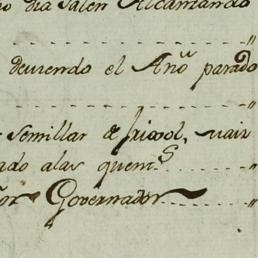 dia salen Alcanzando
deviendo el Año parado
semillar de frixol,
alas quens
Governador